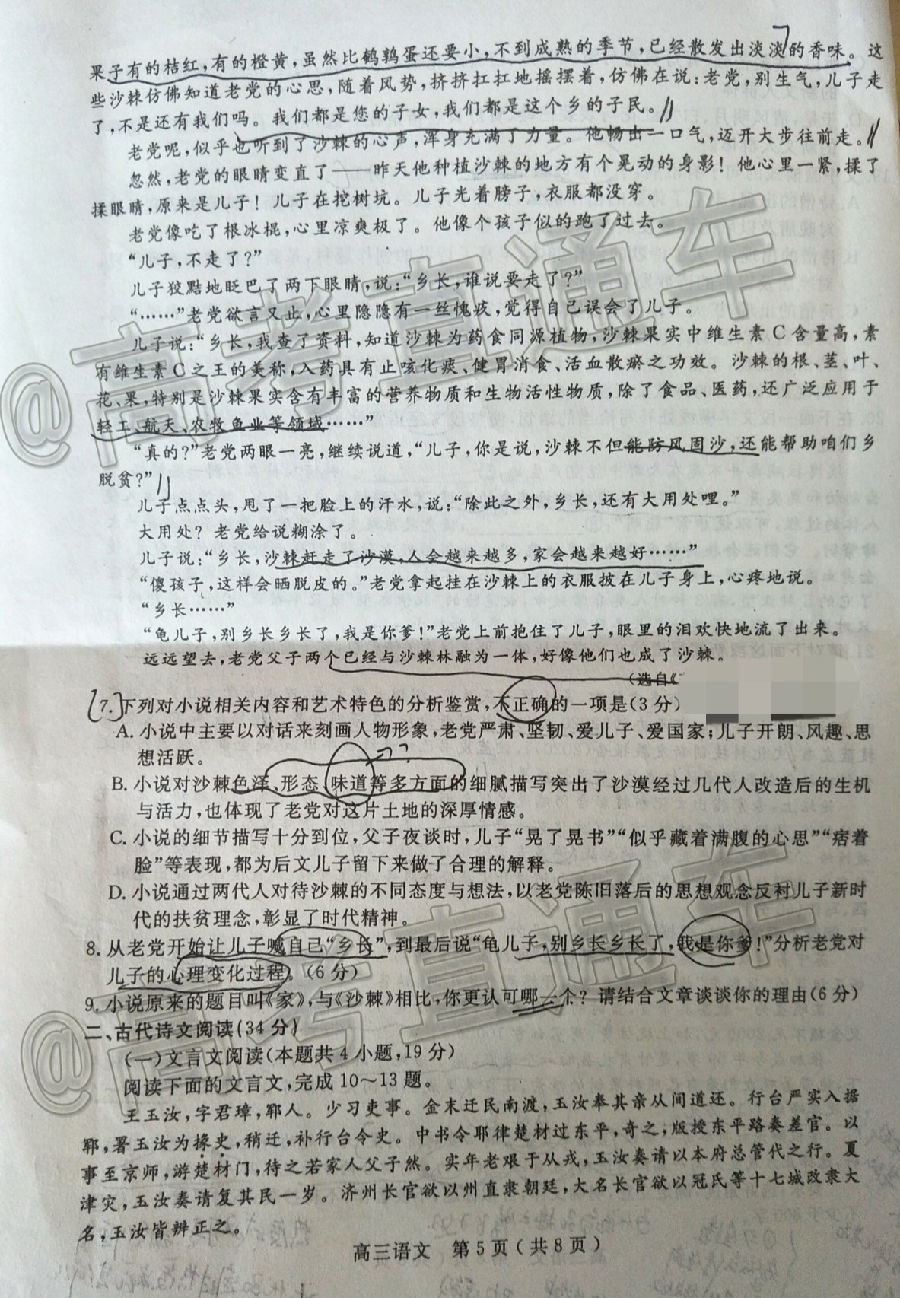 果子有的桔红,有的橙黄,虽然比鹌鹑蛋还要小,不到成熟的季节,已经散发出淡淡的香味。这
些沙棘仿佛知道老党的心思,随着风势,挤挤扛扛地摇摆着,仿佛在说:老党,别生气,儿子走
了,不是还有我们吗。我们都是您的子女,我们都是这个乡的子民。
老党呢,似乎也听到了沙棘的心声,浑身充满了力量。他畅出一口气,迈开大步往前走。
忽然,老党的眼睛变直了——昨天他种植沙棘的地方有个晃动的身影!他心里一紧,揉了
揉眼睛,原来是儿子!儿子在挖树坑。儿子光着膀子,衣服都没穿。
老党像吃了根冰棍,心里凉爽极了。他像个孩子似的跑了过去。
“儿子,不走了?”
儿子狡黠地眨巴了两下眼睛,说:“乡长,谁说要走了?”
“……”老党欲言又止,心里隐隐有一丝愧疚,觉得自己误会了儿子。
儿子说:“乡长,我查了资料,知道沙棘为药食同源植物,沙棘果实中维生素C含量高,素
有维生素C之王的美称,入药具有止咳化痰、健胃消食、活血散瘀之功效。沙棘的根、茎、叶、
花、果,特别是沙棘果实含有丰富的营养物质和生物活性物质,除了食品、医药,还广泛应用于
轻工、航天、农牧鱼业等领域……”
“真的?”老党两眼一亮,继续说道,“儿子,你是说,沙棘不但能防风固沙,还能帮助咱们乡
脱贫?”
儿子点点头,甩了一把脸上的汗水,说:“除此之外,乡长,还有大用处哩。”
大用处?老党给说糊涂了。
儿子说:“乡长,沙棘赶走了沙漠,人会越来越多,家会越来越好……”
“傻孩子,这样会晒脱皮的。”老党拿起挂在沙棘上的衣服披在儿子身上,心疼地说。
“乡长……”
“龟儿子,别乡长乡长了,我是你爹!”老党上前抱住了儿子,眼里的泪欢快地流了出来。
远远望去,老党父子两个已经与沙棘林融为一体,好像他们也成了沙棘。
(选自《
7.下列对小说相关内容和艺术特色的分析鉴赏,不正确的一项是(3分)
A.小说中主要以对话来刻画人物形象,老党严肃、坚韧、爱儿子、爱国家;儿子开朗、风趣、思
想活跃。
B.小说对沙棘色泽,形态、味道等多方面的细腻描写突出了沙漠经过几代人改造后的生机
与活力,也体现了老党对这片土地的深厚情感。
C.小说的细节描写十分到位,父子夜谈时,儿子“晃了晃书”“似乎藏着满腹的心思”“痞着
脸”等表现,都为后文儿子留下来做了合理的解释。
D.小说通过两代人对待沙棘的不同态度与想法,以老党陈旧落后的思想观念反衬儿子新时
代的扶贫理念,彰显了时代精神。
8.从老党开始让儿子喊自己“乡长”,到最后说“龟儿子,别乡长乡长了,我是你爹!”分析老党对
儿子的心理变化过程。(6分)
9.小说原来的题目叫《家》,与《沙棘》相比,你更认可哪一个?请结合文章谈谈你的理由(6分)
二、古代诗文阅读(34分)
(一)文言文阅读(本题共4小题,19分)
阅读下面的文言文,完成10～13题。
王玉汝,字君璋,郓人。少习吏事。金末迁民南渡,玉汝奉其亲从间道还。行台严实入据
郓,署玉汝为掾史,稍迁,补行台令史。中书令耶律楚材过东平,奇之,版授东平路奏差官。以
事至京师,游楚材门,待之若家人父子然。实年老艰于从戎,玉汝奏请以本府总管代之行。夏
津灾,玉汝奏请复其民一岁。济州长官欲以州直隶朝廷,大名长官欲以冠氏等十七城改隶大
名,玉汝皆辨正之。
高三语文 第5页(共8页)
@高考直通车
@高考直通车